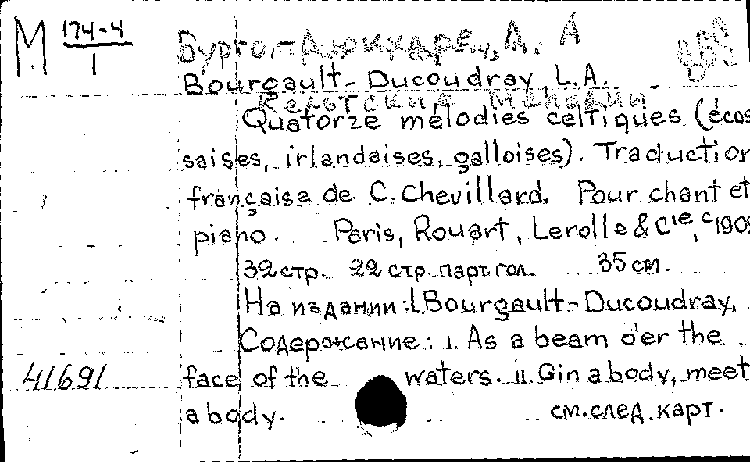 М 174-4
1
Бурго-Дюкудре, Л. А
Bourgault-Ducoudray L.A.
Кельтские мелодии
Quatorze mélodies celtiques (écos
saises, irlandaises, galloises). Traduction
française de C. Chevillard. Pour chant et
piano. Paris, Rouart, Lerolle & Cie, c190
32 стр. 22 стр. парт. гол. 35 см.
На издании: L Bourgault-Ducoudray.
Содержание: I. As a beam o'er the
41691 face of the waters. II. Gin a body, meet
a body. см. след. карт.